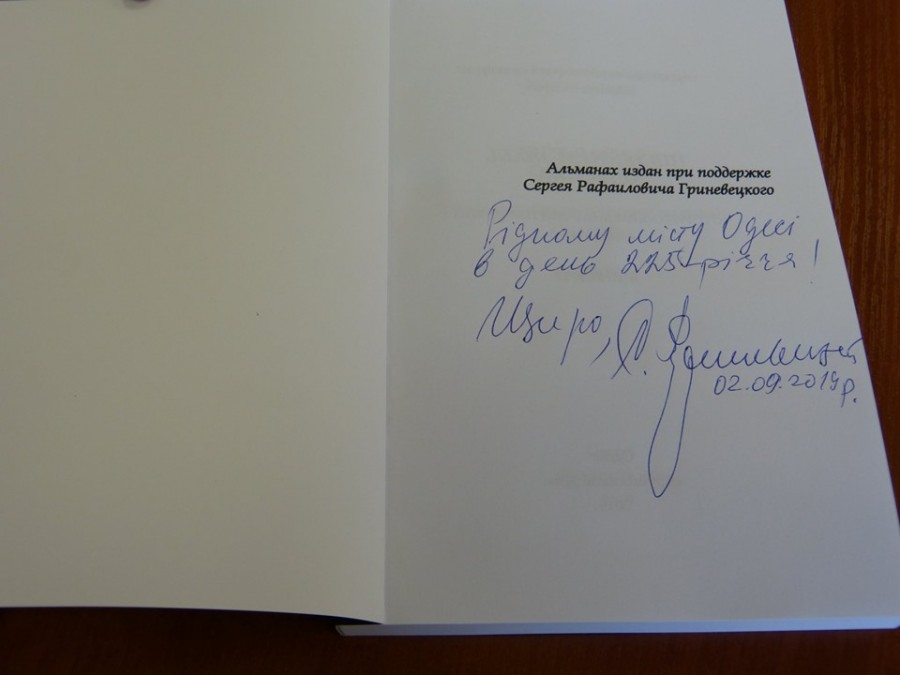 Альманах издан при поддержке
Сергея Рафаиловича Гриневецкого
Рідному місту Одесі
в день 225-річчя!
Щиро, С. Гриневецький
02.09.2019 р.